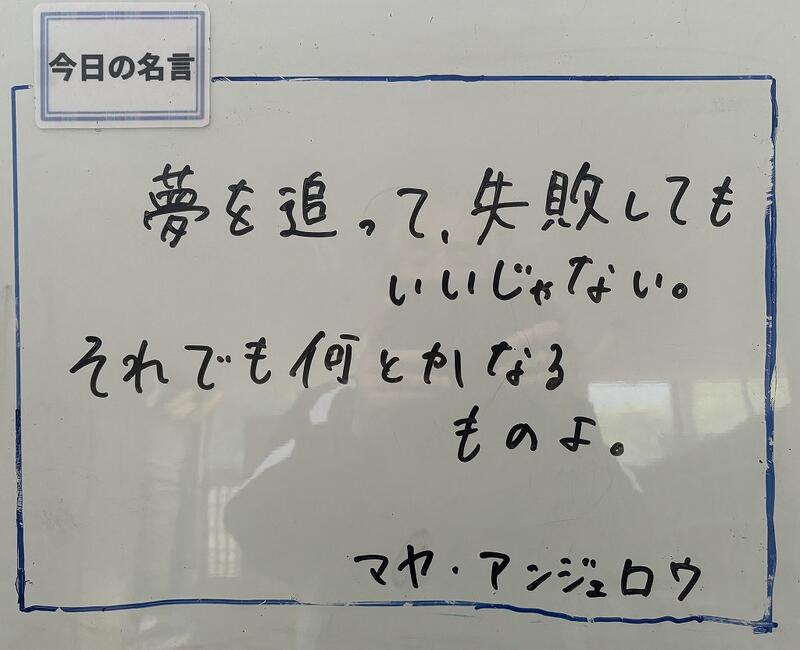 今日の名言
夢を追って、失敗しても
いいじゃない。
それでも何とかなる
ものよ。
マヤ・アンジェロウ